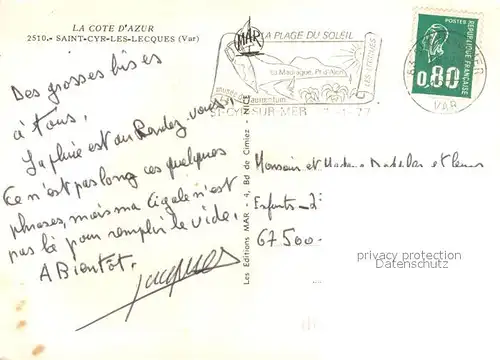 LA COTE D'AZUR
2510.- SAINT-CYR-LES-LECQUES (Var)
MAR
LA PLAGE DU SOLEIL
La Madrague, Pt d'Alon
LES LECQUES
musée de Tauroentum
ST-CYR-SUR-MER
POSTES
REPUBLIQUE FRANÇAISE
0,80
VAR
Des grosses bises
à tous,
La pluie est au Rendez-vous.
Ce n'est pas long ces quelques
phrases, mais ma cigale n'est
pas là pour remplir le vide.
A Bientôt.
Jacques
Les Editions MAR - 4, Bd de Cimiez - NICE
Monsieur et Madame et leurs
Enfants
67500
privacy protection
Datenschutz